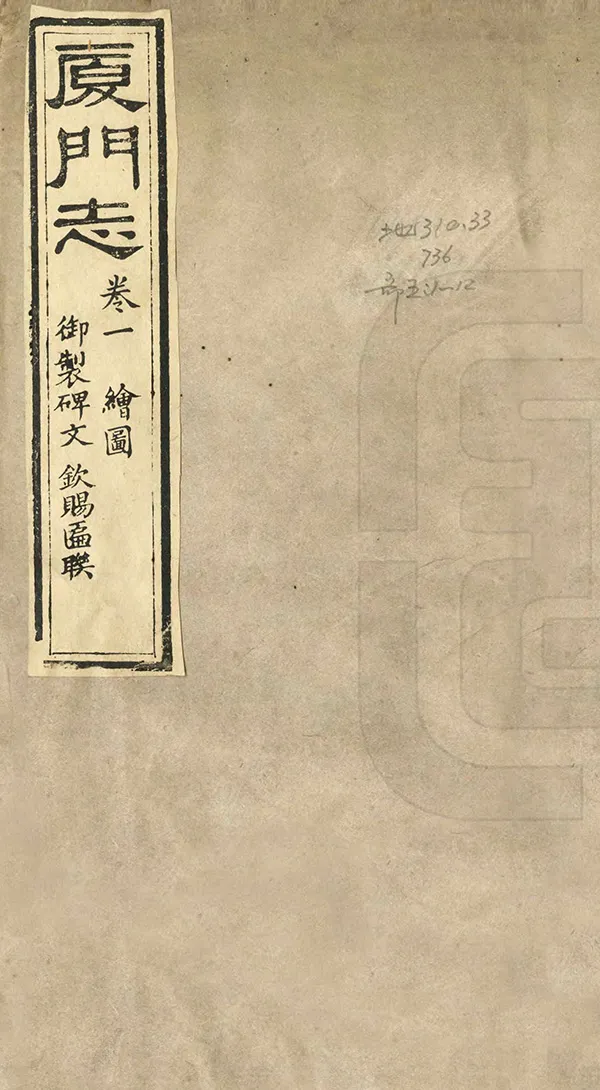 廈門志
卷一 繪圖
御製碑文 欽賜匾聯
地310.33
736